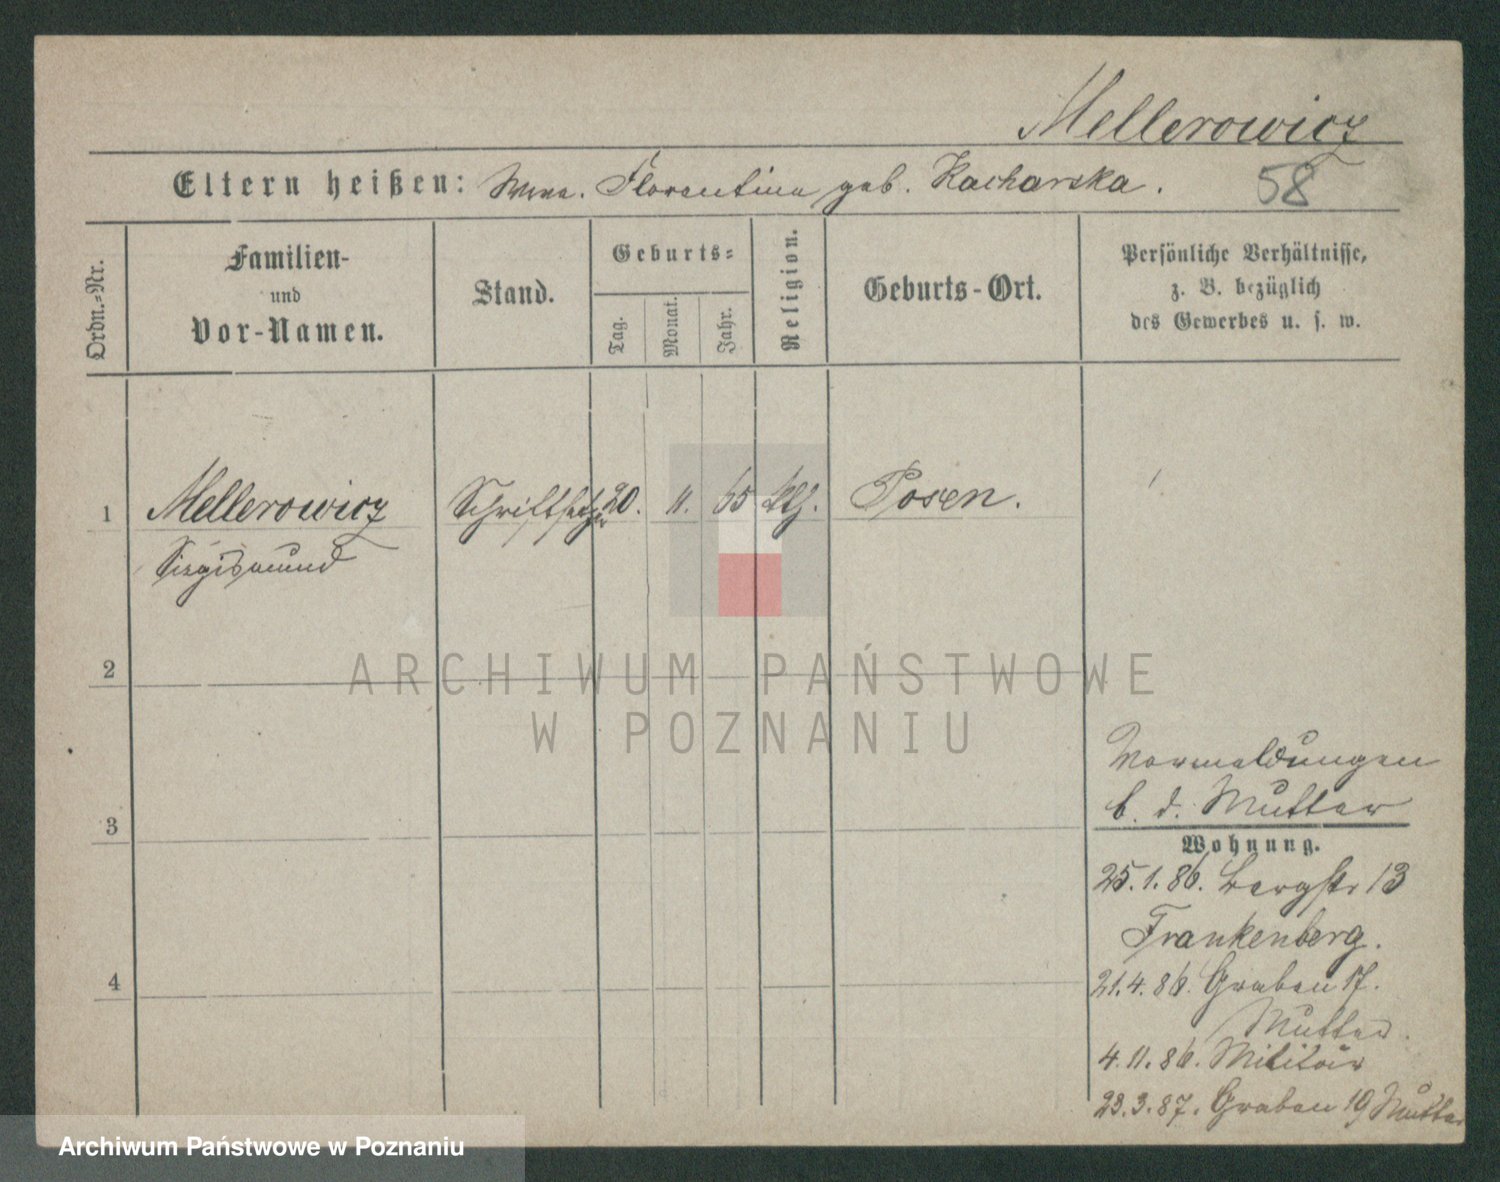 Mellerowicz
Eltern heißen: Wwe. Florentina geb. Kacharska.
58
Ordn.-Nr.
Familien-
und
Vor-Namen.
Stand.
Geburts-
Tag.
Monat.
Jahr.
Religion.
Geburts-Ort.
Persönliche Verhältnisse,
z. B. bezüglich
des Gewerbes u. s. w.
1 Mellerowicz Schriftsetzer 20. 11. 65 kth. Posen.
Siegismund
2
ARCHIWUM PAŃSTWOWE
W POZNANIU
Vormeldungen
b. d. Mutter
3
Wohnung.
25.1.86. Bergstr 13
Frankenberg.
4
21.4.86. Graben 17.
Mutter.
4.11.86. Militär
23.3.87. Graben 19 Mutter
Archiwum Państwowe w Poznaniu